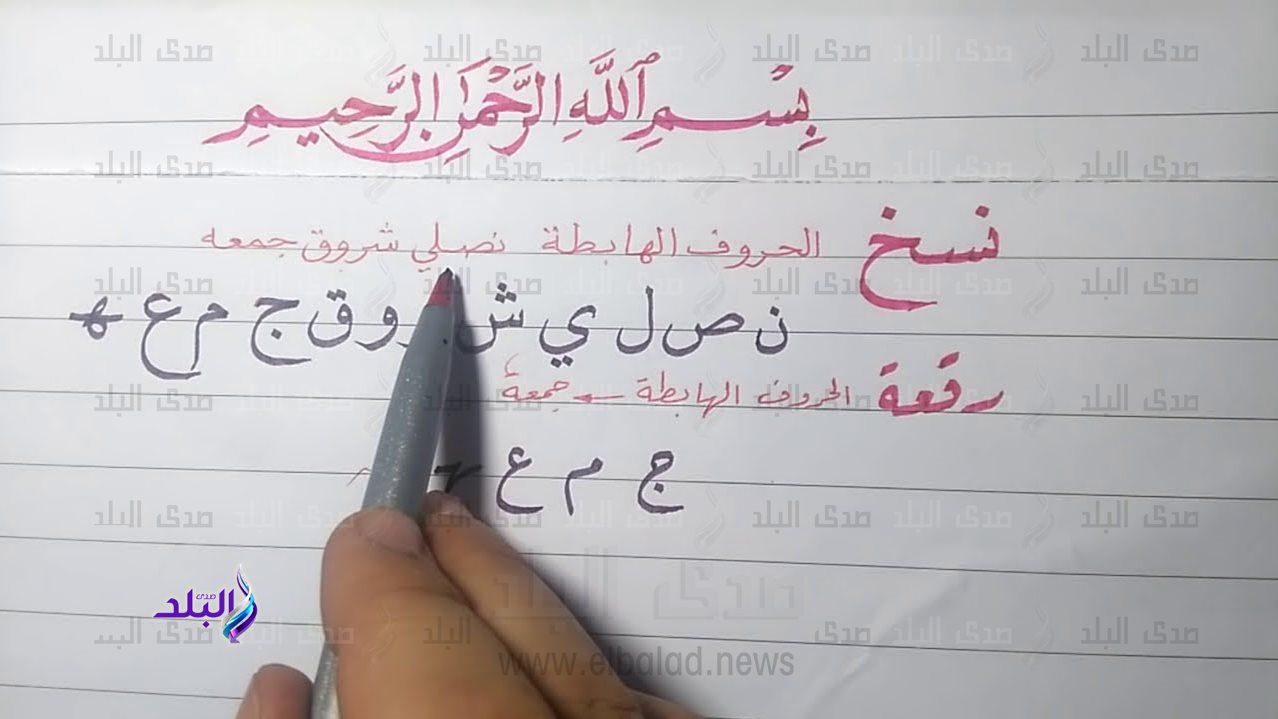 بِسْمِ ٱللَّهِ الرَّحْمَٰنِ الرَّحِيمِ
نسخ الحروف الهابطة نصلي شروق جمعه
ن ص ل ي ش ر و ق ج م ع ه
رقعة الحروف الهابطة جمعة
ج م ع ه
صدى البلد
www.elbalad.news